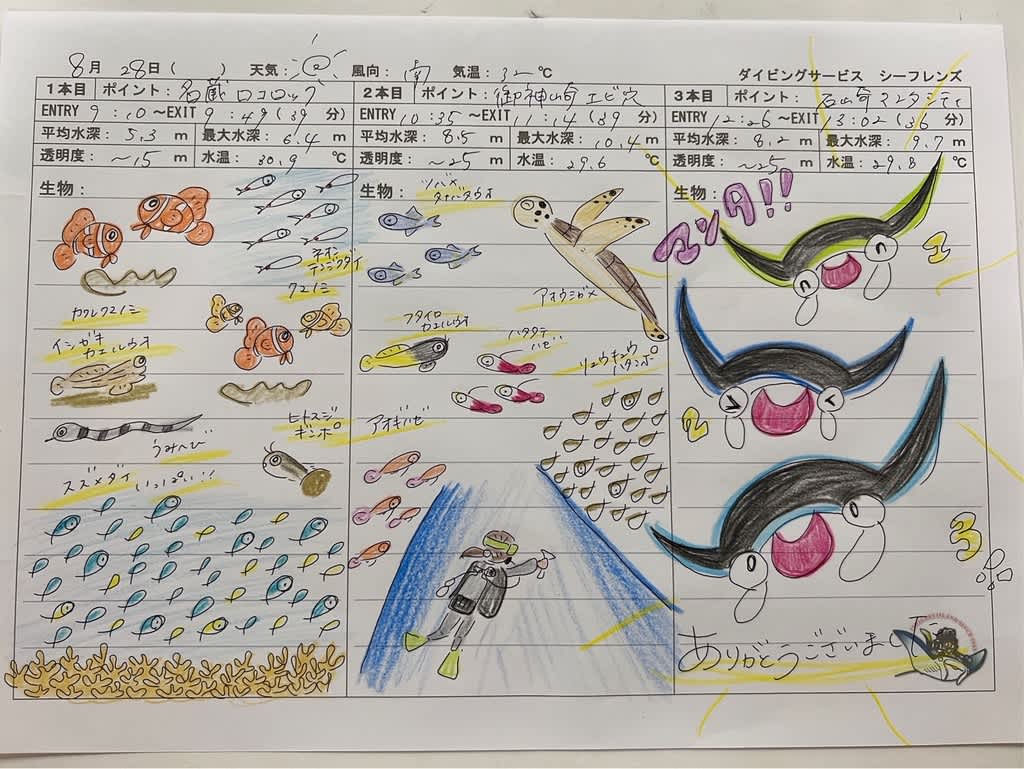 8月 28日( ) 天気: 風向: 南 気温: 32℃
ダイビングサービス シーフレンズ
1本目 ポイント: 名蔵ロコロック
ENTRY 9:10~EXIT 9:49(39分)
平均水深: 5.3 m 最大水深: 6.4 m
透明度: ~15 m 水温: 30.9 ℃
生物:
ネオ
テンジクダイ
クマノミ
カクレクマノミ
イシガキ
カエルウオ
ヒトスジ
ギンポ
うみへび
スズメダイ いっぱい!!
2本目 ポイント: 御神崎 エビ穴
ENTRY 10:35~EXIT 11:14(39分)
平均水深: 8.5 m 最大水深: 10.4 m
透明度: ~25 m 水温: 29.6 ℃
生物:
ツバメ
タカサゴ
アオウミガメ
フタイロ
カエルウオ
ハタタテ
ハゼ
リュウキュウ
ハタンポ
アオギハゼ
3本目 ポイント: 石崎マンタシティ
ENTRY 12:26~EXIT 13:02(36分)
平均水深: 8.2 m 最大水深: 9.7 m
透明度: ~25 m 水温: 29.8 ℃
生物:
マンタ!!
1
2
3
ありがとうございました